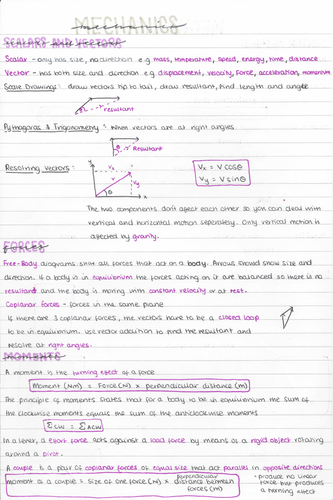 MECHANICS
mechanics
SCALARS AND VECTORS
Scalar - only has size, no direction e.g mass, temperature, speed, energy, time, distance
Vector - has both size and direction e.g displacement, velocity, force, acceleration, momentum
Scale Drawings: draw vectors tip to tail, draw resultant, find length and angle
resultant
Pythagoras & Trigonometry: when vectors are at right angles
Resultant
Resolving vectors:
y
v
vy
θ
vx
x
Vx = V cosθ
Vy = V sinθ
The two components don't affect each other so you can deal with
vertical and horizontal motion seperately. Only vertical motion is
affected by gravity.
FORCES
Free-Body diagrams show all forces that act on a body. Arrows should show size and
direction. If a body is in equilibrium the forces acting on it are balanced so there is no
resultant and the body is moving with constant velocity or at rest.
Coplanar forces - forces in the same plane
If there are 3 coplanar forces, the vectors have to be a closed loop
to be in equilibrium. Use vector addition to find the resultant and
resolve at right angles.
MOMENTS
A moment is the turning effect of a force
Moment (Nm) = Force (N) x perpendicular distance (m)
The principle of moments states that for a body to be in equilibrium the sum of
the clockwise moments equals the sum of the anticlockwise moments
Σcw = Σacw
In a lever, a effort force acts against a load force by means of a rigid object rotating
around a pivot.
A couple is a pair of coplanar forces of equal size that act parallel in opposite directions
moment of a couple = size of one force (N) x perpendicular distance between forces (m)
• produce no linear
force but produces
a turning effect